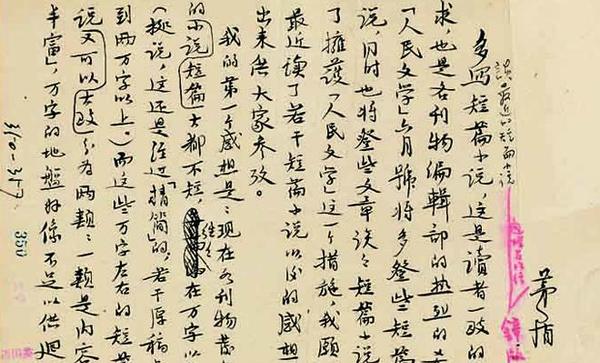 茅盾
談最近的短篇小说
鋅版
多写短篇小说,这是讀者一致的
求,也是各刊物编輯部的热烈的
「人民文学」六月號将多登些短篇
说,同时也将登些文章谈谈短篇小说
了擁護「人民文学」这一个措施,我願
最近读了若干短篇小说以后的感想
出来供大家参攷。
我的第一个感想是:现在各刊物登
的小说短篇大都不短,往往在万字以
(据说,这还是经过「精简」的,若干原稿
到两万字以上。)而这些万字左右的短篇
说又可以大致分为两類:一類是内容
丰富」,万字的地盤好像不足以供迴
310-347
350